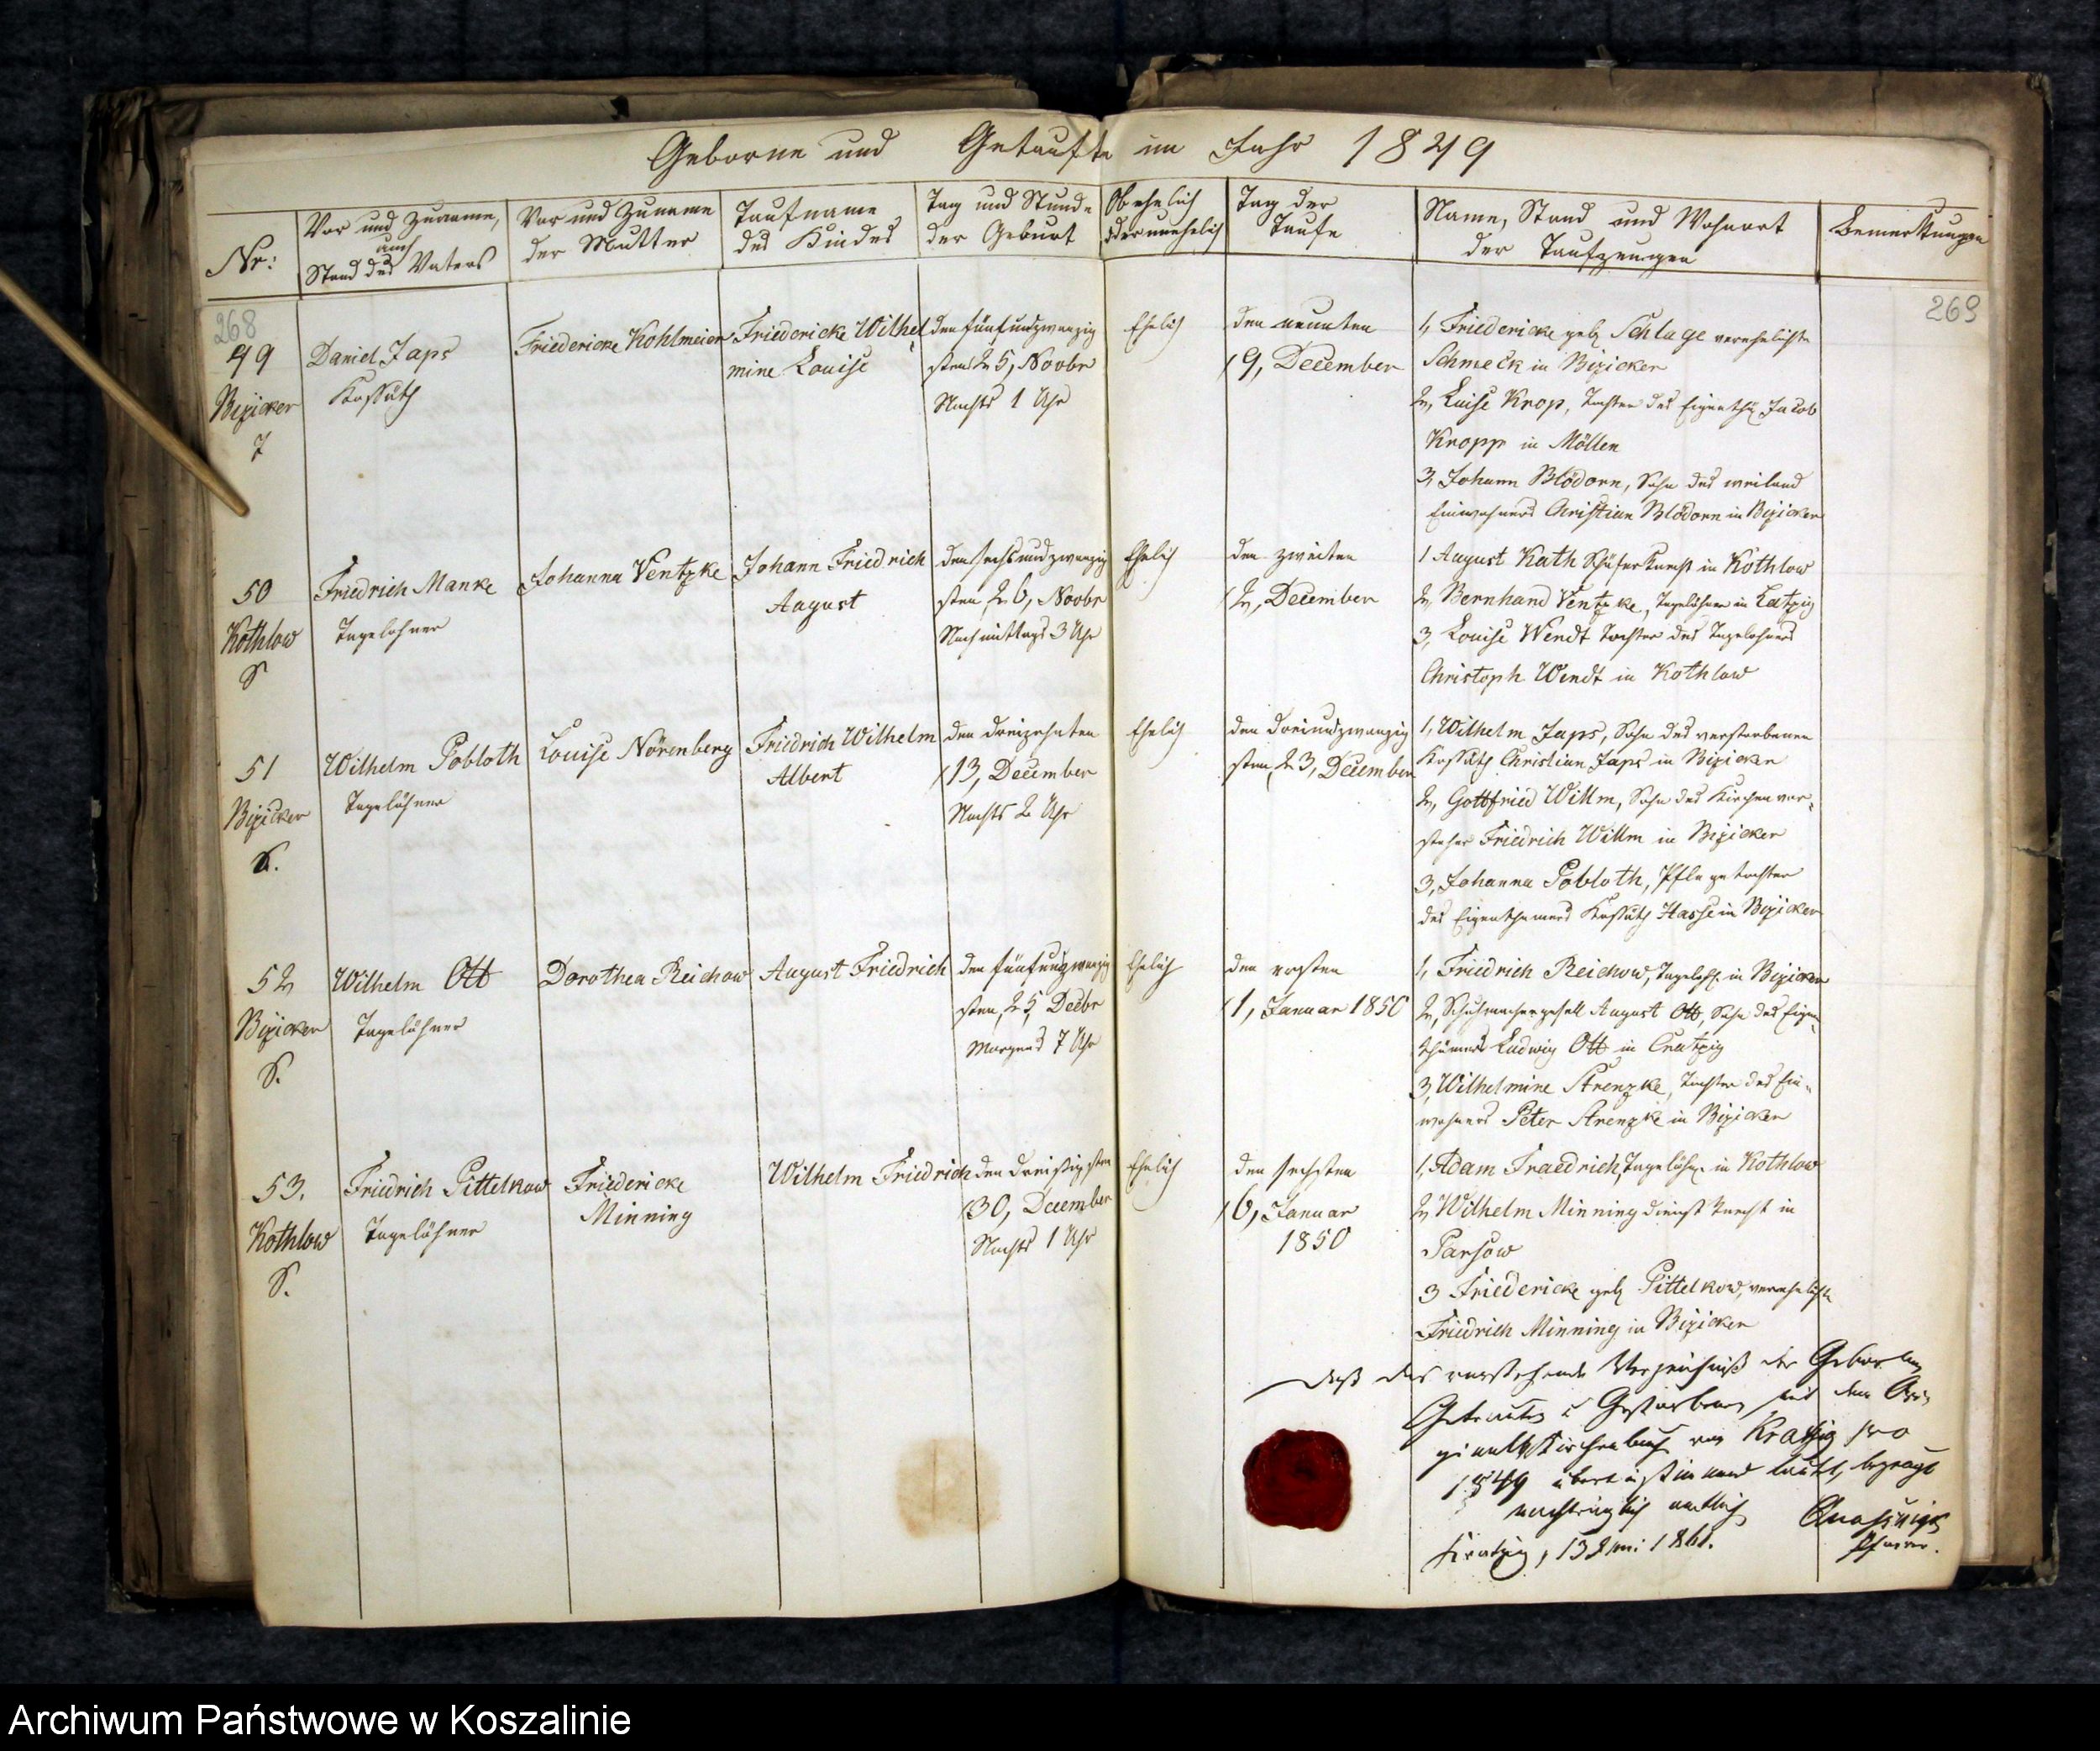 Geborne und Getaufte im Jahr 1849
Nr:
Vor und Zuname,
auch
Stand des Vaters
Vor und Zuname
der Mutter
Taufname
des Kindes
Tag und Stunde
der Geburt
Ob ehelich
oder unehelich
Tag der
Taufe
Name, Stand und Wohnort
der Taufzeugen
Bemerkungen
268
269
49
Bizicker
T
Daniel Japs
Kossäth
Friedericke Kohlmeier
Friedericke Wilhel
mine Louise
den fünfundzwanzig
sten 25, Novbr
Nachts 1 Uhr
Ehelich
den neunten
(9, December
1, Friedericke geb. Schlage verehelichte
Schmeck in Bizicker
2, Luise Krop, Tochter des Eigenth. Jacob
Kropp in Möllen
3, Johann Blödorn, Sohn des weiland
Einwohners Christian Blödorn in Bizicker
50
Kothlow
S
Friedrich Manke
Tagelohner
Johanna Ventzke
Johann Friedrich
August
den sechsundzwanzig
sten 26, Novbr
Nachmittags 3 Uhr
Ehelich
den zweiten
(2, December
1 August Kath Schäferknecht in Kothlow
2, Bernhard Ventzke, Tagelöhner in Latzig
3, Louise Wendt Tochter des Tagelohners
Christoph Wendt in Kothlow
51
Bizicker
S.
Wilhelm Pobloth
Tagelöhner
Louise Nörenberg
Friedrich Wilhelm
Albert
den dreizehnten
(13, December
Nachts 2 Uhr
Ehelich
den dreiundzwanzig
sten, 23, December
1, Wilhelm Japs, Sohn des verstorbenen
Kossäth Christian Japs in Bizicker
2, Gottfried Willm, Sohn des Kirchenvor-
steher Friedrich Willm in Bizicker
3, Johanna Pobloth, Pflegetochter
des Eigenthümers Kossäth Hasse in Bizicker
52
Bizicker
S.
Wilhelm Ott
Tagelöhner
Dorothea Reichow
August Friedrich
den fünfundzwanzig
sten, 25, Decbr
Morgens 7 Uhr
Ehelich
den ersten
(1, Januar 1850
1, Friedrich Reichow, Tagelöh. in Bizicker
2, Schuhmachergesell August Ott, Sohn des Eigen-
thümers Ludwig Ott in Cratzig
3, Wilhelmine Strenzke, Tochter des Ein-
wohners Peter Strenzke in Bizicker
53.
Kothlow
S.
Friedrich Pittelkow
Tagelöhner
Friedericke
Minning
Wilhelm Friedrich
den dreißigsten
(30, December
Nachts 1 Uhr
Ehelich
den sechsten
(6, Januar
1850
1, Adam Fraedrich, Tagelöhn. in Kothlow
2, Wilhelm Minning Dienstknecht in
Parsow
3 Friedericke geb. Pittelkow, verehelichte
Friedrich Minning in Bizicker
Daß das vorstehende Verzeichniß der Gebornen
Getrauten u Gestorbenen mit dem Ori-
ginalkirchenbuch von Kratzig pro
1849 übereinstimmend lautet, bezeugt
nachträglich amtlich
Kratzig, 13 Juni 1861.
Pfarrer.
Archiwum Państwowe w Koszalinie